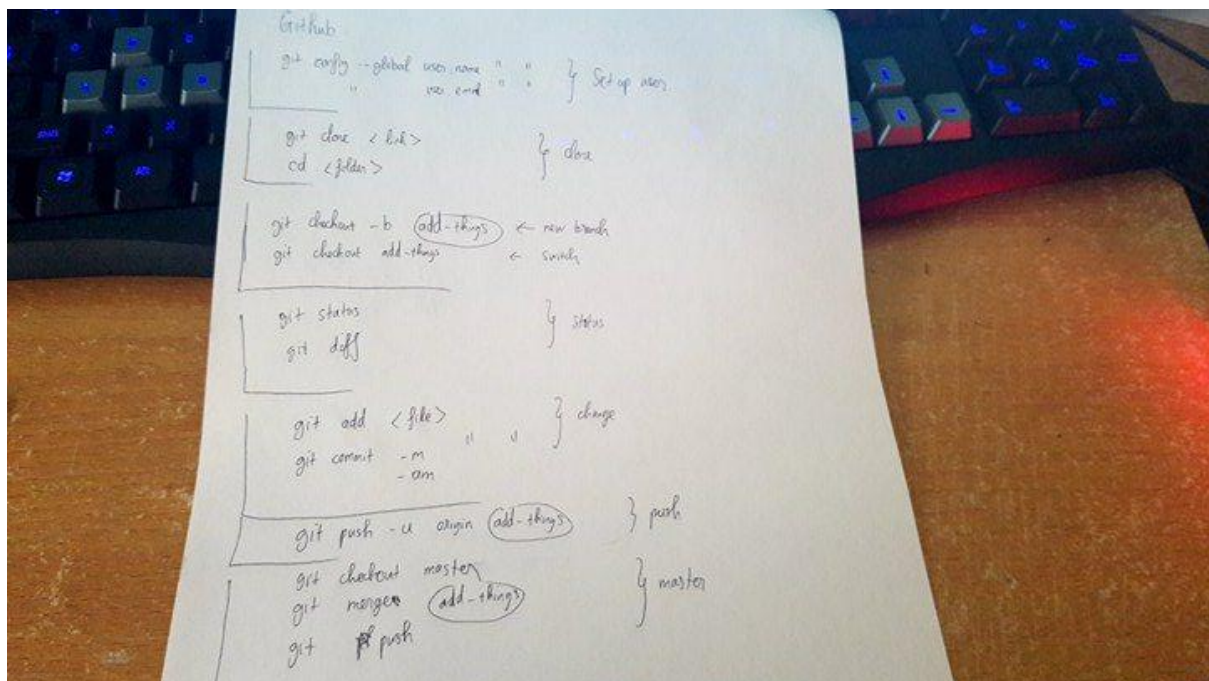 GitHub
git config --global user.name " " } Set up user
" user.email " "
git clone <link> } clone
cd <folder>
git checkout -b add-things ← new branch
git checkout add-things ← switch
git status } status
git diff
git add <file> } change
git commit -m " "
-am
git push -u origin add-things } push
git checkout master } master
git merge add-things
git push